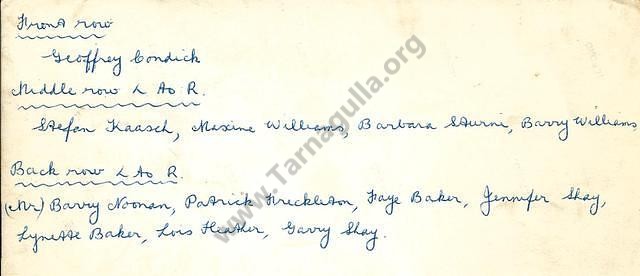 Front row
Geoffrey Condick
Middle row L to R.
Stefan Kaasch, Maxine Williams, Barbara Sturni, Barry Williams
Back row L to R.
(Mr) Barry Noonan, Patrick Freckleton, Faye Baker, Jennifer Shay,
Lynette Baker, Lois Heather, Garry Shay.
www.Tarnagulla.org